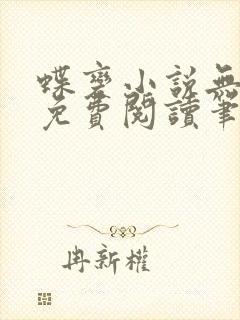 蝶變小說無
免費閱讀筆
冉新權